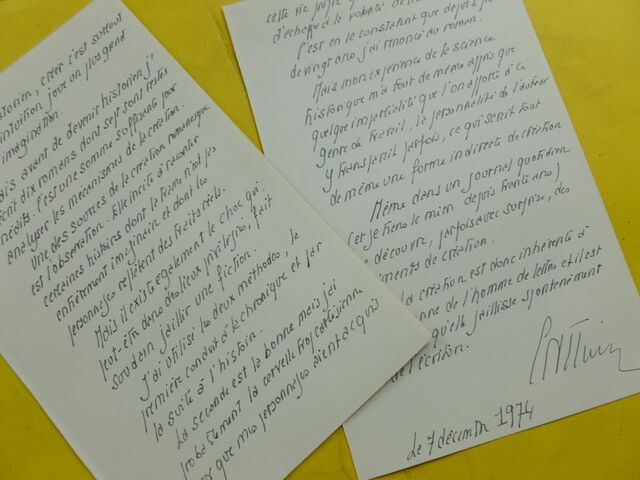 historien, créer c'est surtout
intuition joue un plus grand
imagination.
mais avant de devenir historien j'
écrit dix romans dont sept sont restés
inédits. C'est une somme suffisante pour
analyser les mécanismes de la création.
Une des sources de la création romanesque
est l'observation. Elle incite à raconter
certaines histoires dont la trame n'est pas
entièrement imaginaire et dont les
personnages reflètent des traits réels.
Mais il existe également le choc qui,
peut-être dans des lieux privilégiés, fait
soudain jaillir une fiction.
J'ai utilisé les deux méthodes, la
première conduit à la chronique et par
la suite à l'histoire.
La seconde est la bonne mais j'ai
probablement la cervelle trop cartésienne
pour que mes personnages aient acquis
cette vie
d'échapper à la volonté de
C'est en le constatant que depuis
de vingt ans j'ai renoncé au roman.
Mais mon expérience de la science
historique m'a tout de même appris que
quelque impartialité que l'on apporte à ce
genre de travail, la personnalité de l'auteur
y transparait parfois, ce qui serait tout
de même une forme indirecte de création
Même dans un journal quotidien
(et je tiens le mien depuis trente ans)
découvre, parfois avec surprise, des
éléments de création.
la création est donc inhérente à
de l'homme de lettres et il est
qu'elle jaillisse spontanément
de l'écriture.
Le 7 décembre 1974